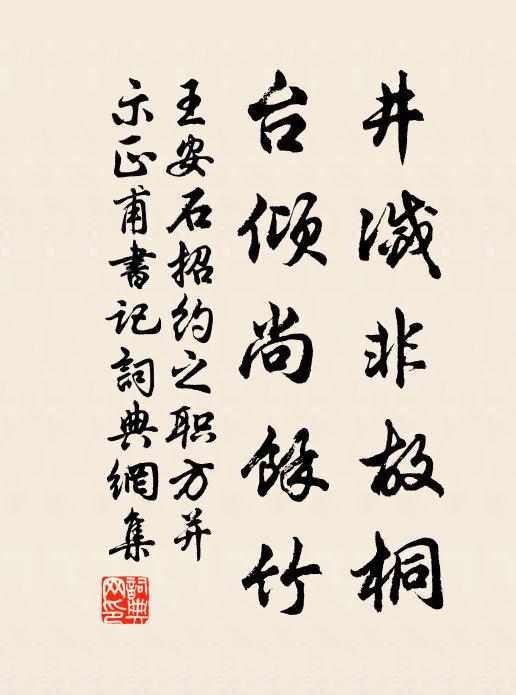 井滅非故桐
台倾尚餘竹
王安石招约之职方并
示正甫書记詞典網集